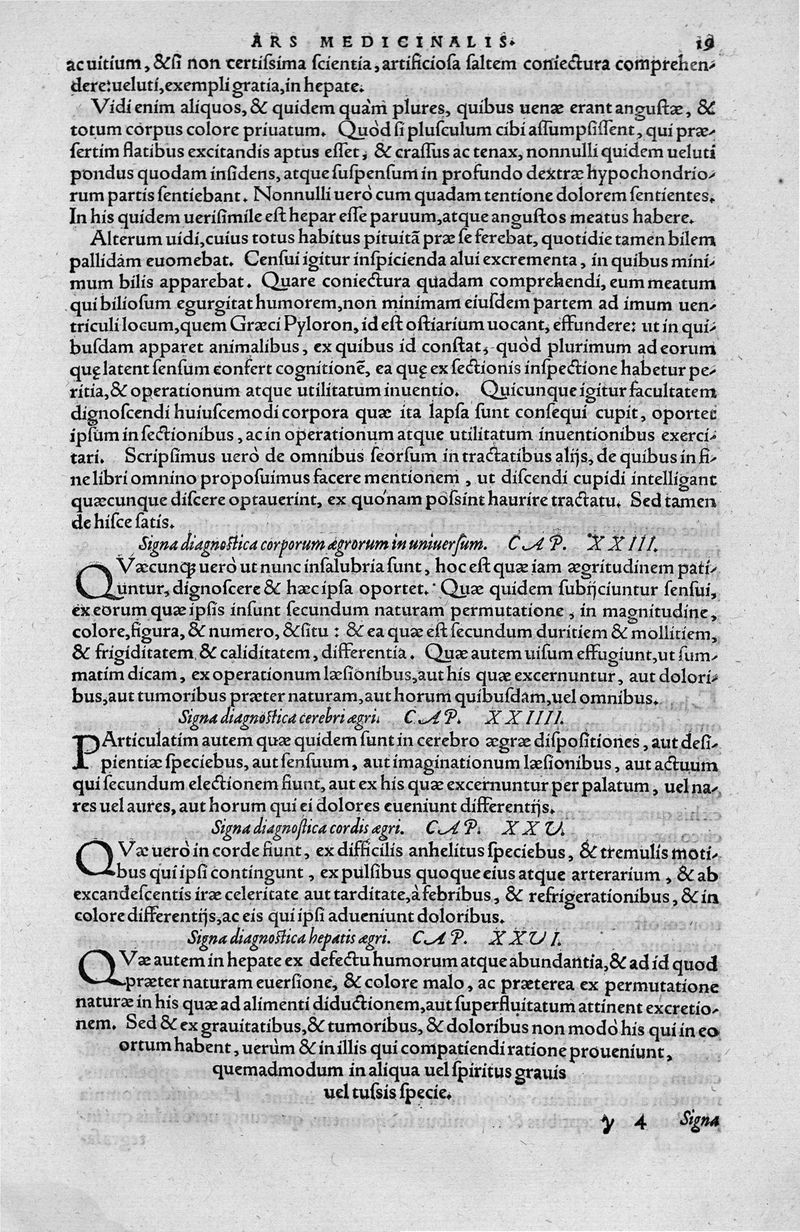 ARS MEDICINALIS. 19
ac uitium, &ſi non certiſsima ſcientia, artificioſa ſaltem coniectura comprehen-
dere: ueluti, exempli gratia, in hepate.
Vidi enim aliquos, & quidem quàm plures, quibus uenæ erant anguſtæ, &
totum corpus colore priuatum. Quòd ſi pluſculum cibi aſſumpſiſſent, qui præ-
ſertim flatibus excitandis aptus eſſet, & craſſus ac tenax, nonnulli quidem ueluti
pondus quodam inſidens, atque ſuſpenſum in profundo dextræ hypochondrio-
rum partis ſentiebant. Nonnulli uerò cum quadam tentione dolorem ſentientes.
In his quidem ueriſimile eſt hepar eſſe paruum, atque anguſtos meatus habere.
Alterum uidi, cuius totus habitus pituitã præ ſe ferebat, quotidie tamen bilem
pallidam euomebat. Cenſui igitur inſpicienda alui excrementa, in quibus mini-
mum bilis apparebat. Quare coniectura quadam comprehendi, eum meatum
qui bilioſum egurgitat humorem, non minimam eiuſdem partem ad imum uen-
triculi locum, quem Græci Pyloron, id eſt oſtiarium uocant, effundere: ut in qui-
buſdam apparet animalibus, ex quibus id conſtat, quòd plurimum ad eorum
quę latent ſenſum confert cognitionẽ, ea quę ex ſectionis inſpectione habetur pe-
ritia, & operationum atque utilitatum inuentio. Quicunque igitur facultatem
dignoſcendi huiuſcemodi corpora quæ ita lapſa ſunt conſequi cupit, oportet
ipſum in ſectionibus, ac in operationum atque utilitatum inuentionibus exerci-
tari. Scripſimus uerò de omnibus ſeorſum in tractatibus alijs, de quibus in fi-
ne libri omnino propoſuimus facere mentionem, ut diſcendi cupidi intelligant
quæcunque diſcere optauerint, ex quo'nam poſsint haurire tractatu. Sed tamen
de hiſce ſatis.
Signa diagnoſtica corporum ægrorum in uniuerſum. CAP. XXIII.
QVæcunq; uerò ut nunc inſalubria ſunt, hoc eſt quæ iam ægritudinem pati-
untur, dignoſcere & hæc ipſa oportet. Quæ quidem ſubijciuntur ſenſui,
ex eorum quæ ipſis inſunt ſecundum naturam permutatione, in magnitudine,
colore, figura, & numero, &ſitu: & ea quæ eſt ſecundum duritiem & mollitiem,
& frigiditatem & caliditatem, differentia. Quæ autem uiſum effugiunt, ut ſum-
matim dicam, ex operationum læſionibus, aut his quæ excernuntur, aut dolori-
bus, aut tumoribus præter naturam, aut horum quibuſdam, uel omnibus.
Signa diagnoſtica cerebri ægri. CAP. XXIIII.
PArticulatim autem quæ quidem ſunt in cerebro ægræ diſpoſitiones, aut deſi-
pientiæ ſpeciebus, aut ſenſuum, aut imaginationum læſionibus, aut actuum
qui ſecundum electionem fiunt, aut ex his quæ excernuntur per palatum, uel na-
res uel aures, aut horum qui ei dolores eueniunt differentijs.
Signa diagnoſtica cordis ægri. CAP. XXV.
QVæ uerò in corde fiunt, ex difficilis anhelitus ſpeciebus, & tremulis moti-
bus qui ipſi contingunt, ex pulſibus quoque eius atque arterarium, & ab
excandeſcentis iræ celeritate aut tarditate, à febribus, & refrigerationibus, & in
colore differentijs, ac eis qui ipſi adueniunt doloribus.
Signa diagnoſtica hepatis ægri. CAP. XXVI.
QVæ autem in hepate ex defectu humorum atque abundantia, & ad id quod
præter naturam euerſione, & colore malo, ac præterea ex permutatione
naturæ in his quæ ad alimenti diductionem, aut ſuperfluitatum attinent excretio-
nem. Sed & ex grauitatibus, & tumoribus, & doloribus non modò his qui in eo
ortum habent, uerùm & in illis qui compatiendi ratione proueniunt,
quemadmodum in aliqua uel ſpiritus grauis
uel tuſsis ſpecie.
y 4 Signa